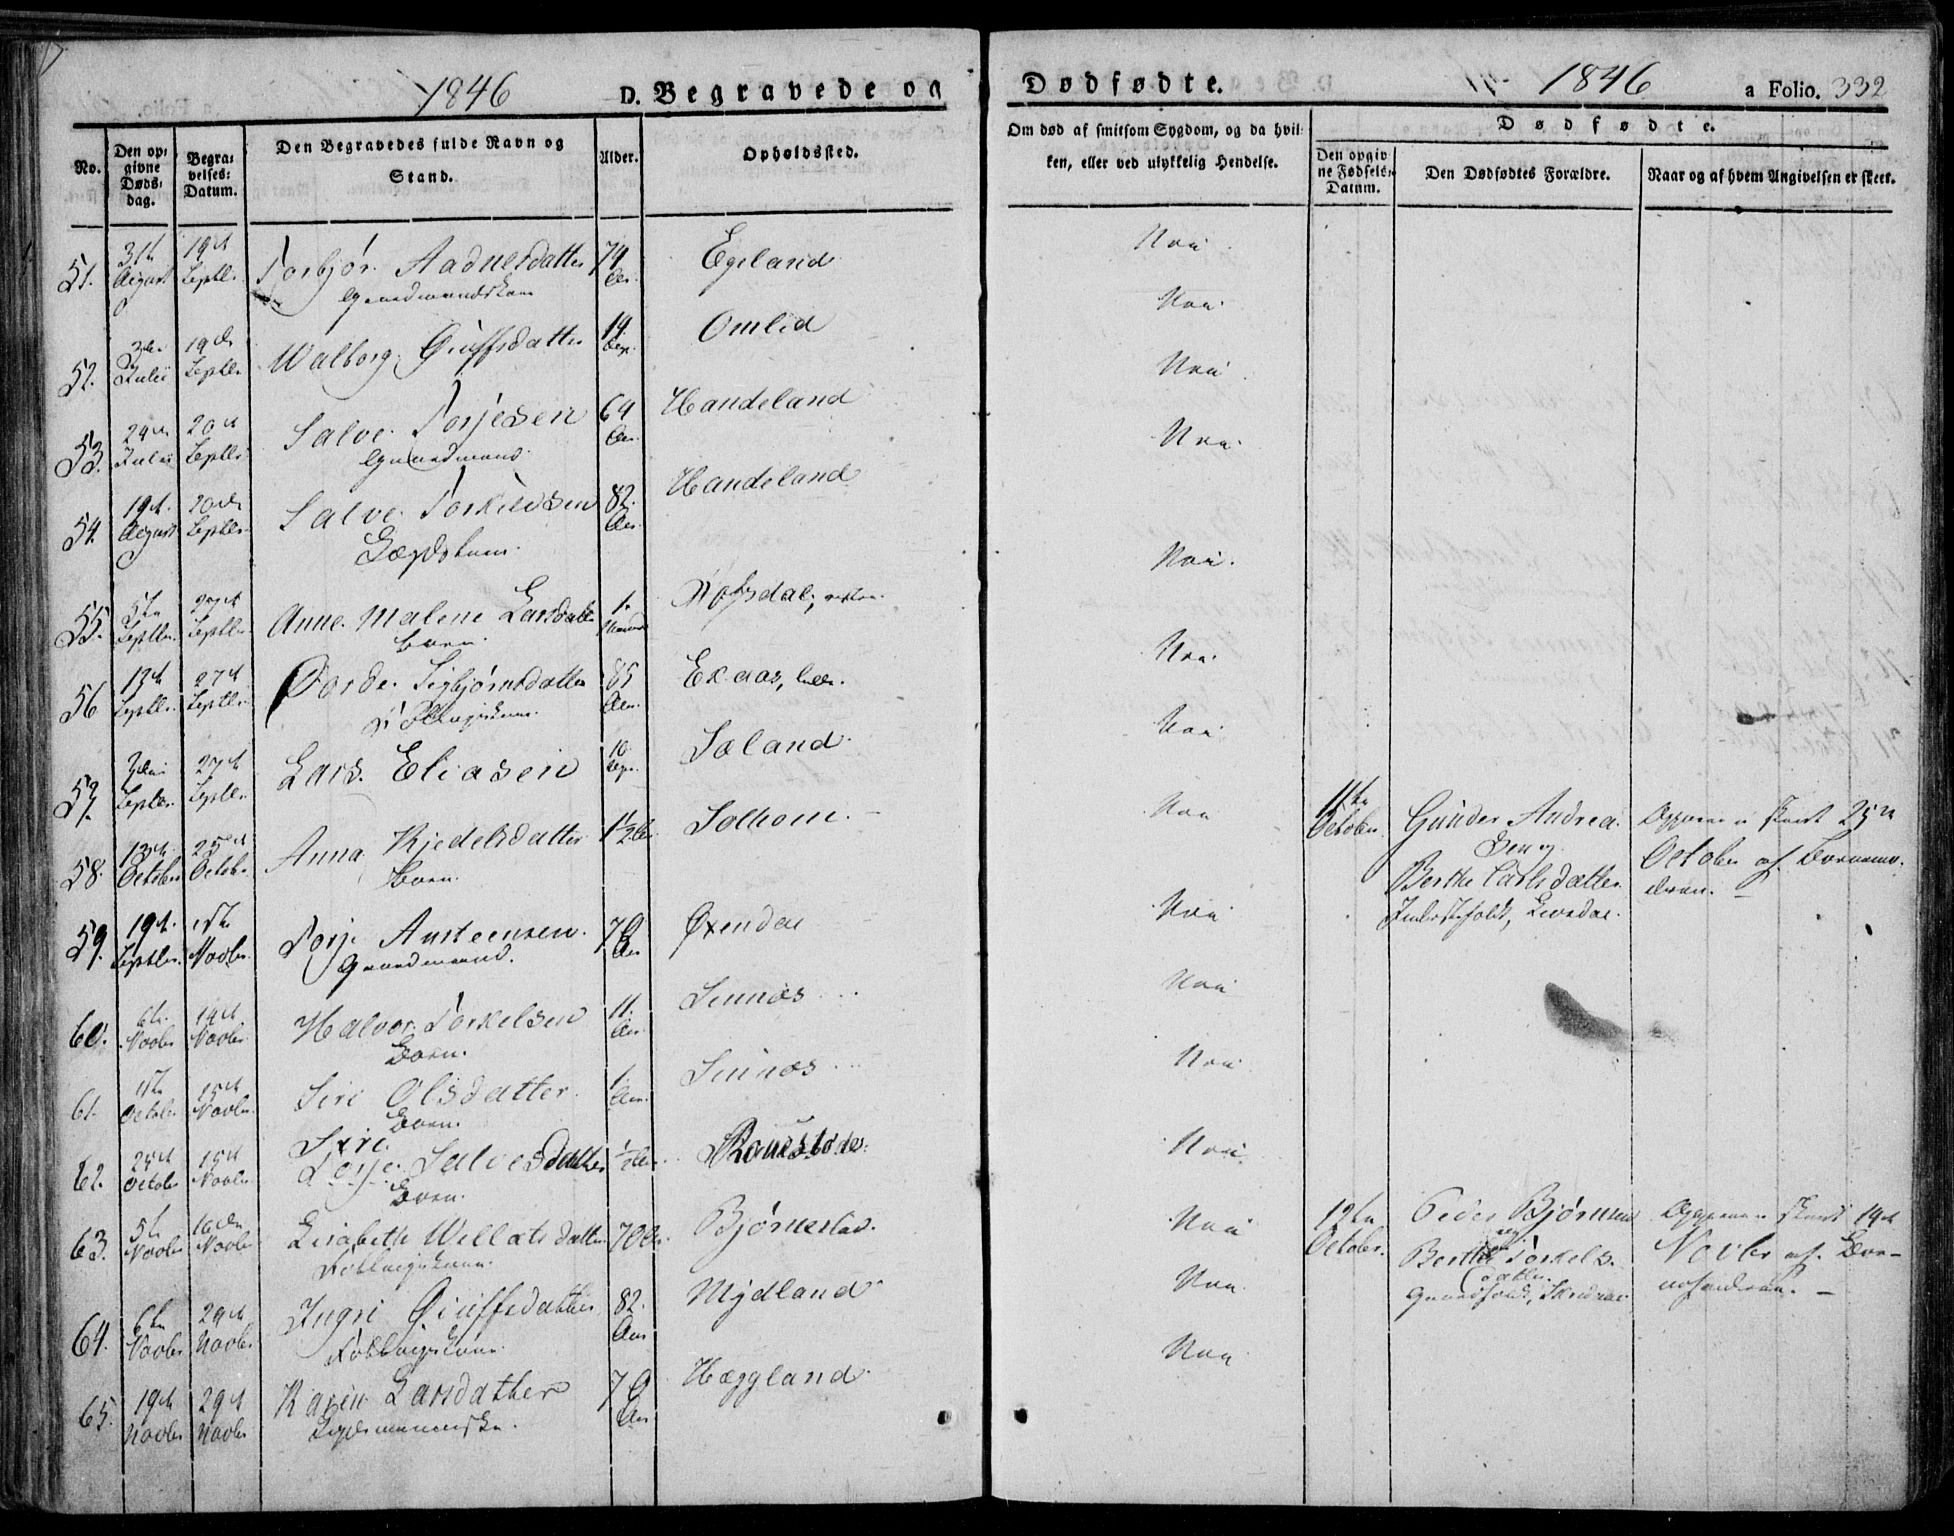 1846 D. Begravede og
No. Den opgivne Dødsdag. Begravelses: Datum. Den Begravedes fulde Navn og Stand. Alder. Opholdssted.
51. 31te August 19de Septbr. Torbjør Aadnesdatter 74 Aar. Egeland
Gaardmandskone
52. Julii 19de Septbr. Walborg Giuffsdatter 19. Omlid
53. 24de Julii 20de Septbr. Salve Torjesen 64 Aar. Handeland
Gaardmand.
54. 19de August 20de Septbr. Salve Torkildsen 82. Aar. Handeland
Lægdslem.
55. 5te Septbr. 27de Septbr. Anne Malene Larsdatter 1. Maaned
Barn.
56 13de Septbr. 27de Septbr. Sigbjørnsdatter 85 Aar. Exaas,
Føllaugskone.
57. Septbr. 27de Septbr. Lars Eliasen 10. Søland
58. 13de October 25de Octobr. Anna Kjedelsdatter 1½ Aar Solhom.
Barn.
59. 19de Septbr. 1ste Novbr. Torje Austeensen. 70 Aar Øxendal
Gaardmand.
60. 6te Novbr 14de Novbr. Halvor Torkelsen 11. Aar. Sinnes
Barn.
61. 1ste October 15de Novbr. Siri Olsdatter. 1 Aar. Sinnes
Barn.
Siri
62. 25de October 15de Novbr. Torje Salvesdatter ½ Aar.
Barn.
63. 5te Novbr 16de Novbr Lisabeth Willatsdatter 70 Aar. Bjørnestad.
Føllaugskone.
64. 6te Novbr 29de Novbr Ingri Giuffsdatter 82. Aar Mydland
Føllaugskone.
65. 19de Novbr 29de Novbr Karen Larsdatter 70 Aar Hæggland.
Lægdsmenneske.
Dødfødte. 1846 a Folio. 332
Om død af smitsom Sygdom, og da hvilken, eller ved ulykkelig Hendelse.
Dødfødte.
Den opgivne Fødsels: Datum. Den Dødfødtes Forældre. Naar og af hvem Angivelsen er skeet.
Nei
Nei
Nei
Nei
Nei.
Nei
Nei
Nei
Nei
Nei
Nei
Nei
Nei
Nei
Nei
11te October. Gunder Andreasen og Berthe Carlsdatter. skeet 25de October af
12te October. Peder Bjørnsen og Berthe Torkelsdatter. skeet 14de Novbr af